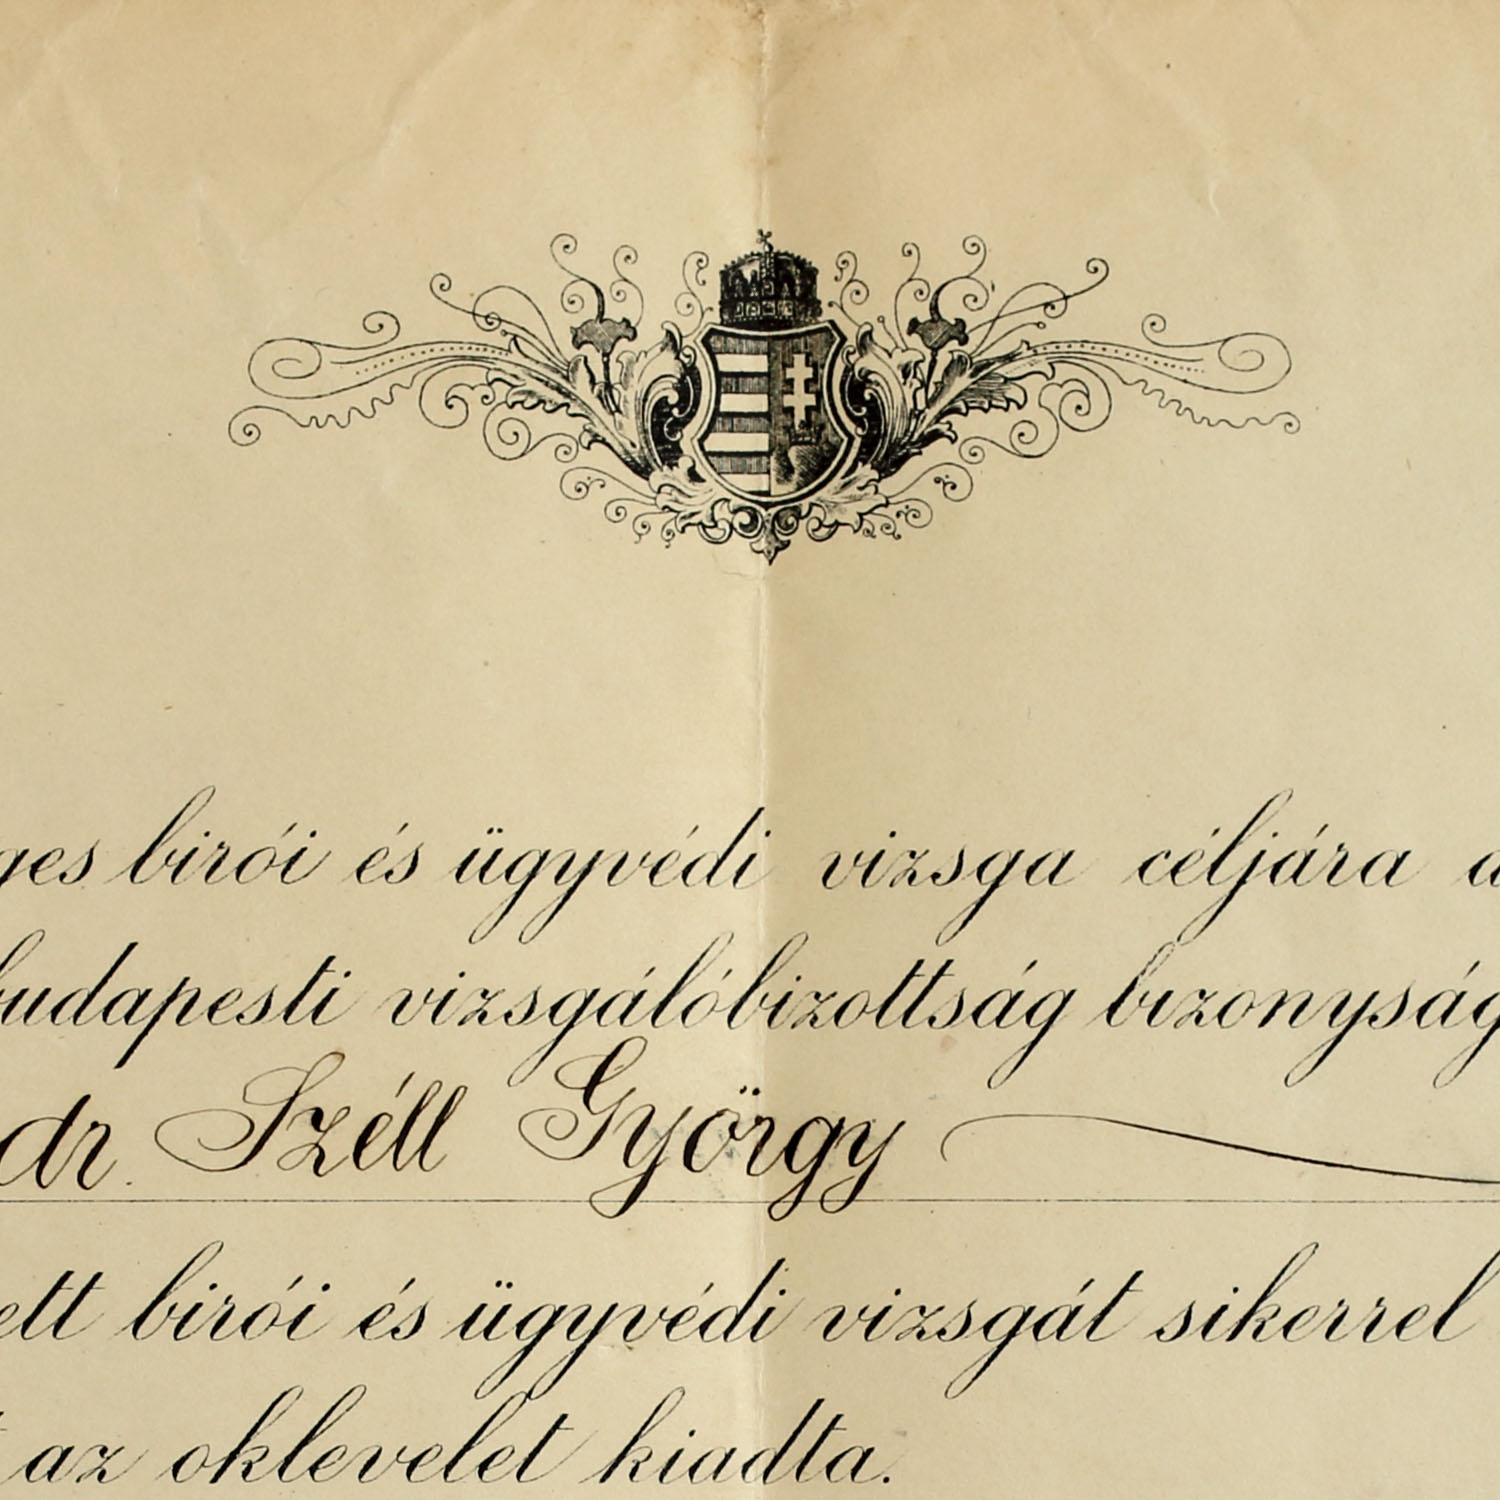 ges birói és ügyvédi vizsga céljára a
budapesti vizsgálóbizottság bizonyság
dr. Széll György
ett birói és ügyvédi vizsgát sikerrel
az oklevelet kiadta.